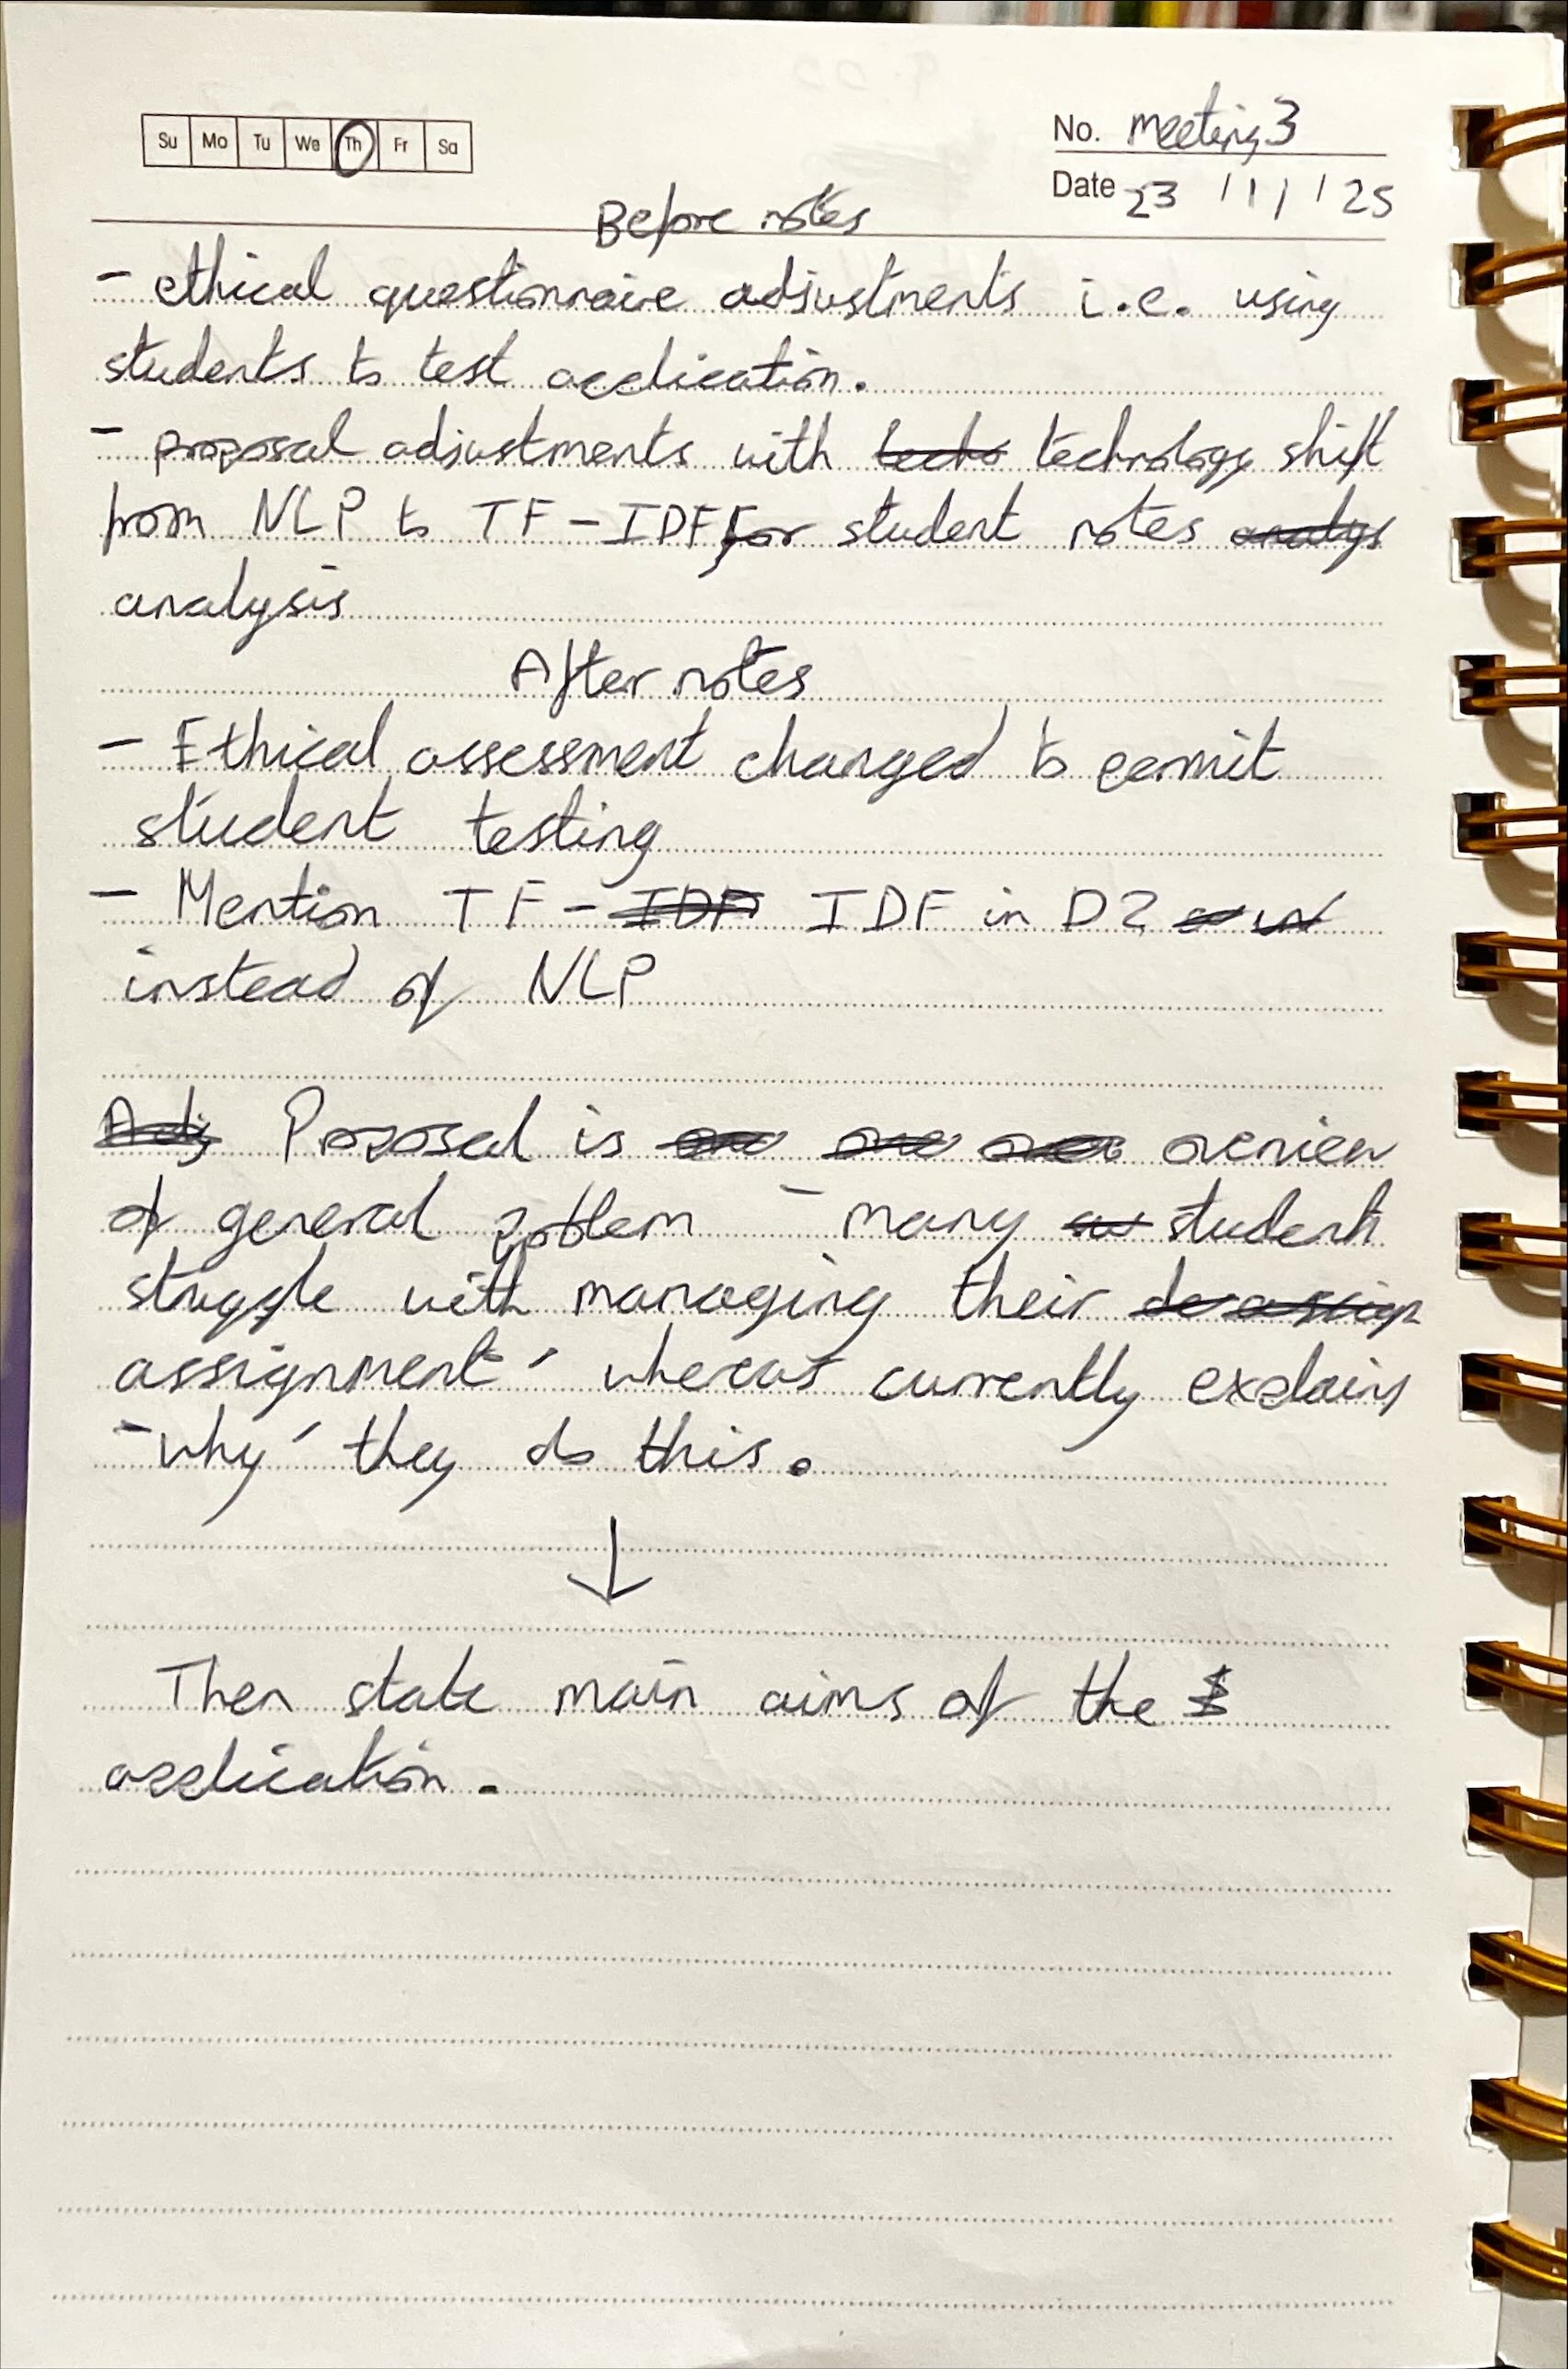 Su Mo Tu We Th Fr Sa
No. Meeting 3
Date 23 / 1 / / 25
Before notes
- ethical questionnaire adjustments i.e. using
students to test application.
- proposal adjustments with techo technology shift
from NLP to TF-IDF for student notes analys
analysis
After notes
- Ethical assessment changed to permit
student testing
- Mention TF-IDF IDF in D2
instead of NLP
Proposal is overview
of general problem - many student
struggle with managing their
assignment' whereas currently explains
-why' they do this.
↓
Then state main aims of the
application.